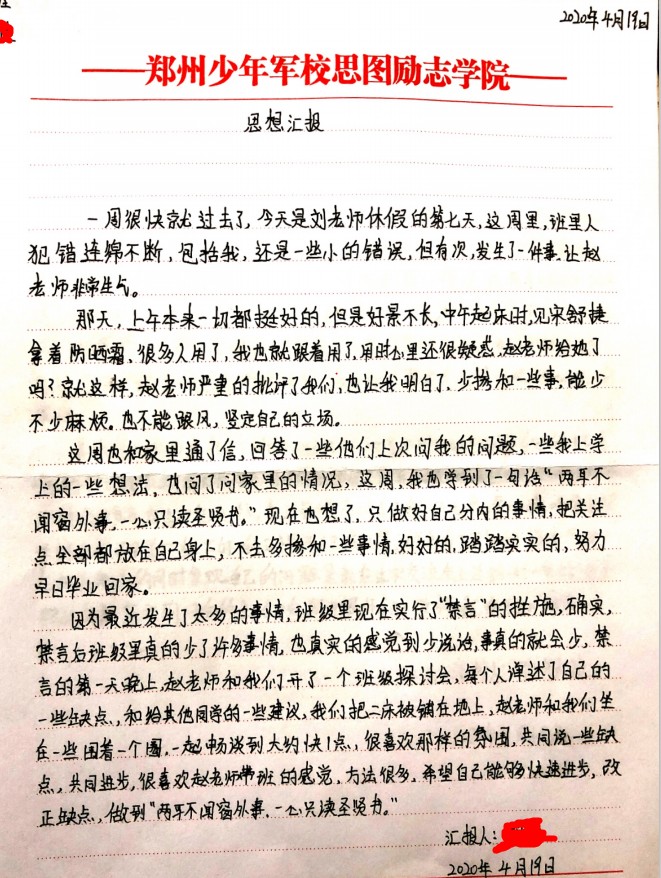 2020年4月19日
郑州少年军校思图励志学院
思想汇报
一周很快就过去了,今天是刘老师休假的第七天,这周里,班里人
犯错连绵不断,包括我,还是一些小的错误,但有次,发生了一件事,让赵
老师非常生气。
那天,上午本来一切都挺好的,但是好景不长,中午起床时,见宋舒捷
拿着防晒霜、很多人用了,我也就跟着用了,用时心里还很疑惑,赵老师给她了
吗?就这样,赵老师严重的批评了我们,也让我明白了,少掺和一些事,能少
不少麻烦。也不能跟风,坚定自己的立场。
这周也和家里通了信,回答了一些他们上次问我的问题,一些我上学
上的一些想法,也问了问家里的情况,这周,我也学到了一句话“两耳不
闻窗外事,一心只读圣贤书。”现在也想了,只做好自己分内的事情,把关注
点全部都放在自己身上,不去多掺和一些事情,好好的,踏踏实实的,努力
早日毕业回家。
因为最近发生了太多的事情,班级里现在实行了“禁言”的措施,确实,
禁言后班级里真的少了许多事情,也真实的感觉到少说话,事真的就会少,禁
言的第一天晚上,赵老师和我们开了一个班级探讨会,每个人讲述了自己的
一些缺点,和给其他同学的一些建议,我们把二床被铺在地上,赵老师和我们坐
在一些围着一个圈,一起畅谈到大约快1点,很喜欢那样的氛围,共同说一些缺
点,共同进步,很喜欢赵老师带班的感觉,方法很多,希望自己能够快速进步,改
正缺点,做到“两耳不闻窗外事,一心只读圣贤书。”
汇报人:
2020年4月19日